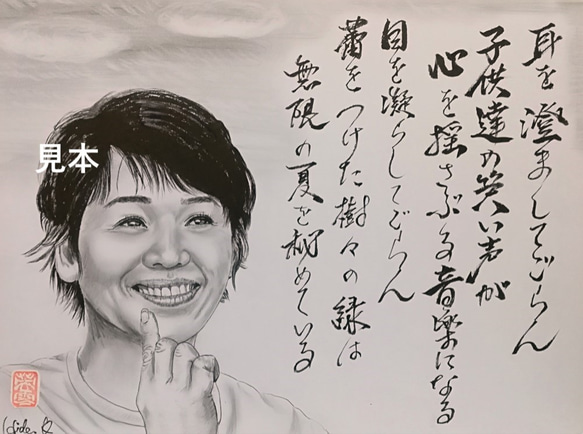 耳を澄ましてごらん
子供達の笑い声が
心を揺さぶる音楽になる
目を凝らしてごらん
蕾をつけた樹々の緑は
無限の夏を秘めている
見本